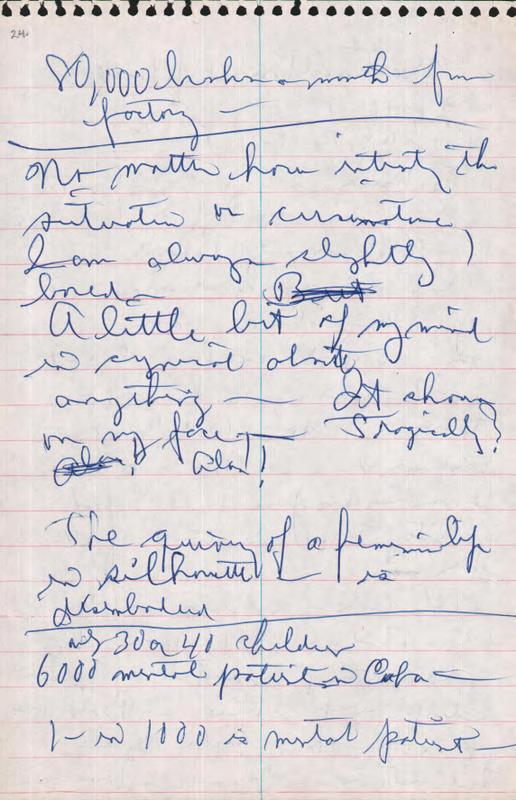 24.
80,000 books a month from
factory —
No matter how intensly the
situation or circumstance,
I am always slightly
bored — But
A little bit of my mind
is cynical about
anything — It shows
on my face — Tragically?
Alas! Alas!
The quiver of a feminin lip
in silhouette is
disembodied
only 30 or 40 children
6000 mental patients in Cuba —
1 — in 1000 is mental patient —